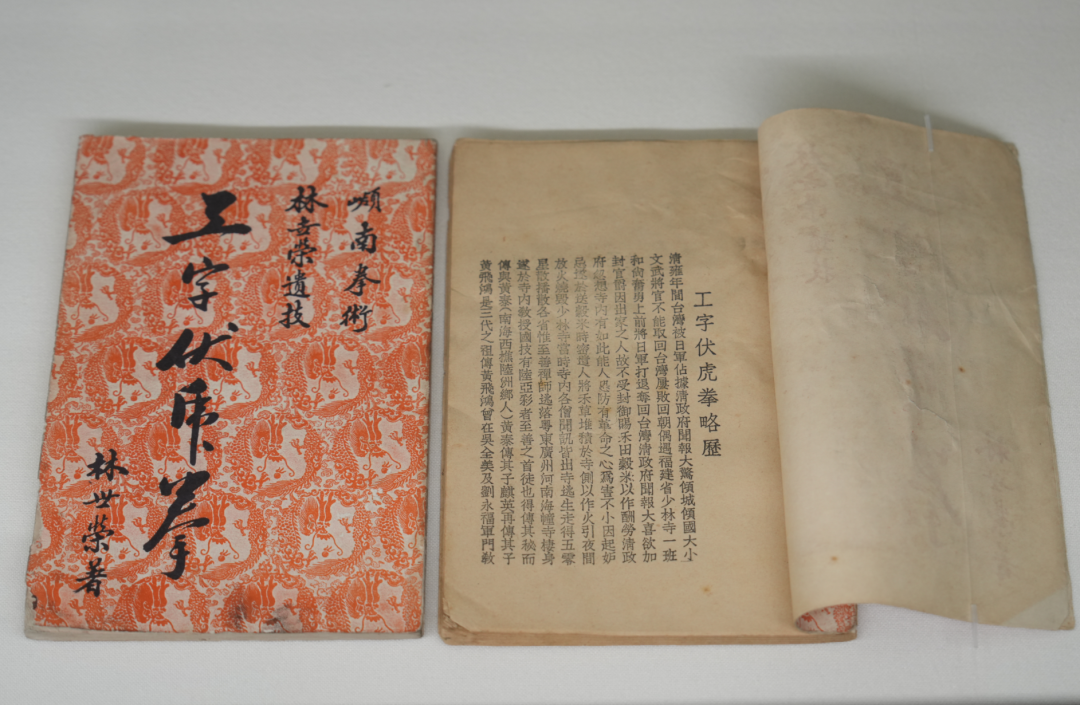 嶺南拳術
林世榮遺技
工字伏虎拳
林世榮著
工字伏虎拳略歷
清雍年間台灣被日軍佔據清政府聞報大驚領城領國大小
文武將官不能取回台灣屢敗回朝偶遇福建省少林寺一班
和尚奮勇上前將日軍打退奪回台灣清政府聞報大喜欲加
封官爵因出家之人故不受封御賜禾田穀米以作酬勞清政
府寺內有如此能人恐防有革命之心爲害不小因起妒
於送穀米時密遣人將禾草堆積於寺側以作火引夜間
放火燒毀少林寺當時寺內各僧聞訊皆出寺逃生走得五零
星散播散各省惟至善禪師逃落粵東廣州河南海幢寺棲身
遂於寺內教授國技有陸亞彩者至善之首徒也得傳其秘而
傳與黃泰(南海西樵陸洲鄉人)黃泰傳其子麒英再傳其子
黃飛鴻是三代之祖傳黃飛鴻曾在吳全美及劉永福軍門教